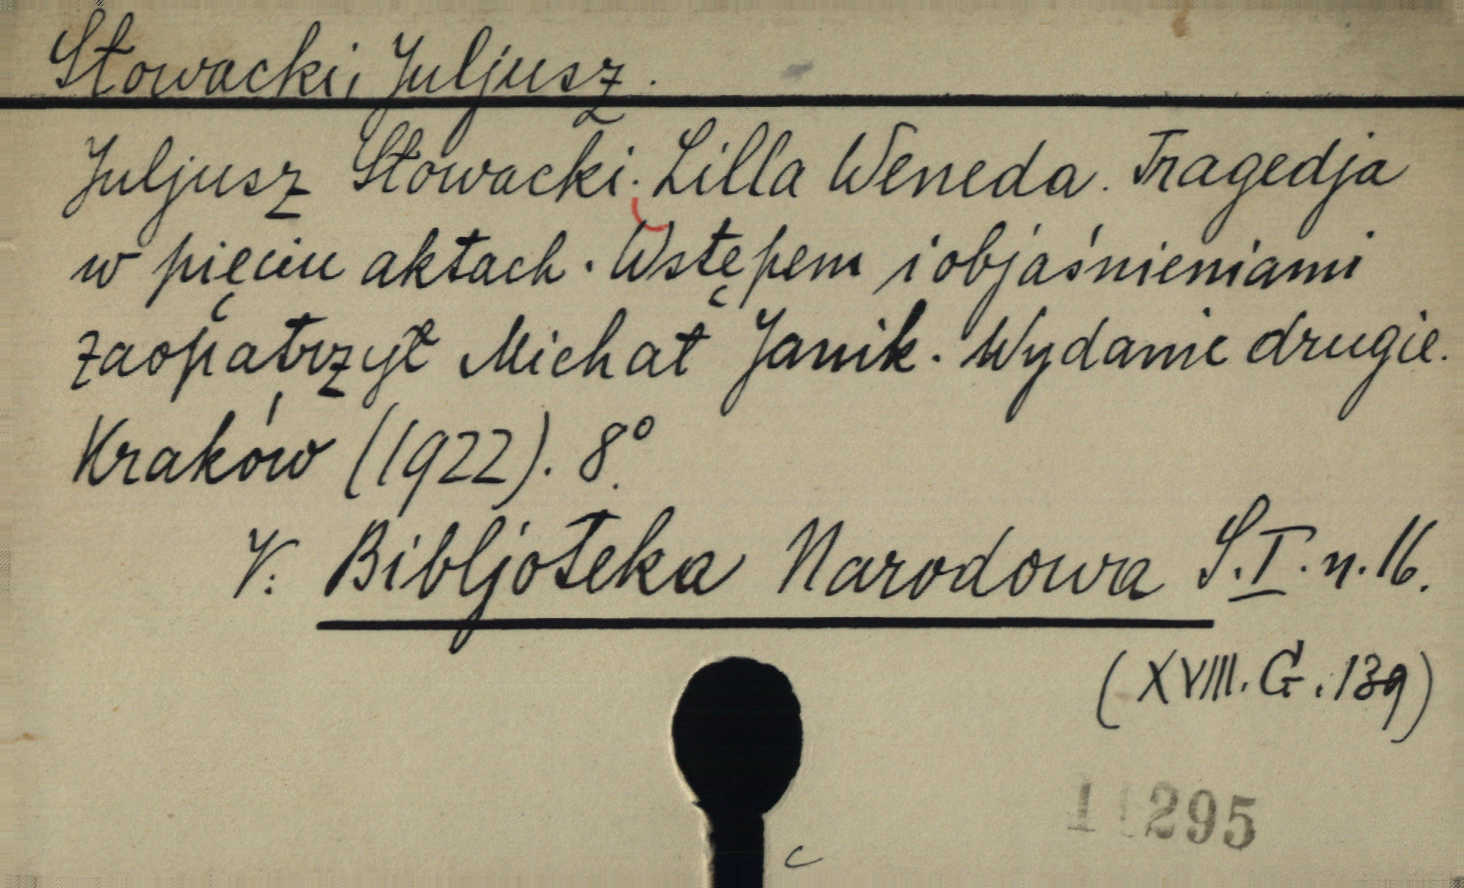 Słowacki, Juljusz.
Juljusz Słowacki. Lilla Weneda. Tragedja
w pięciu aktach. Wstępem i objaśnieniami
zaopatrzył Michał Janik. Wydanie drugie.
Kraków (1922). 8°.
V. Bibljoteka Narodowa S. I. n. 16.
(XVIII. G. 139)
295